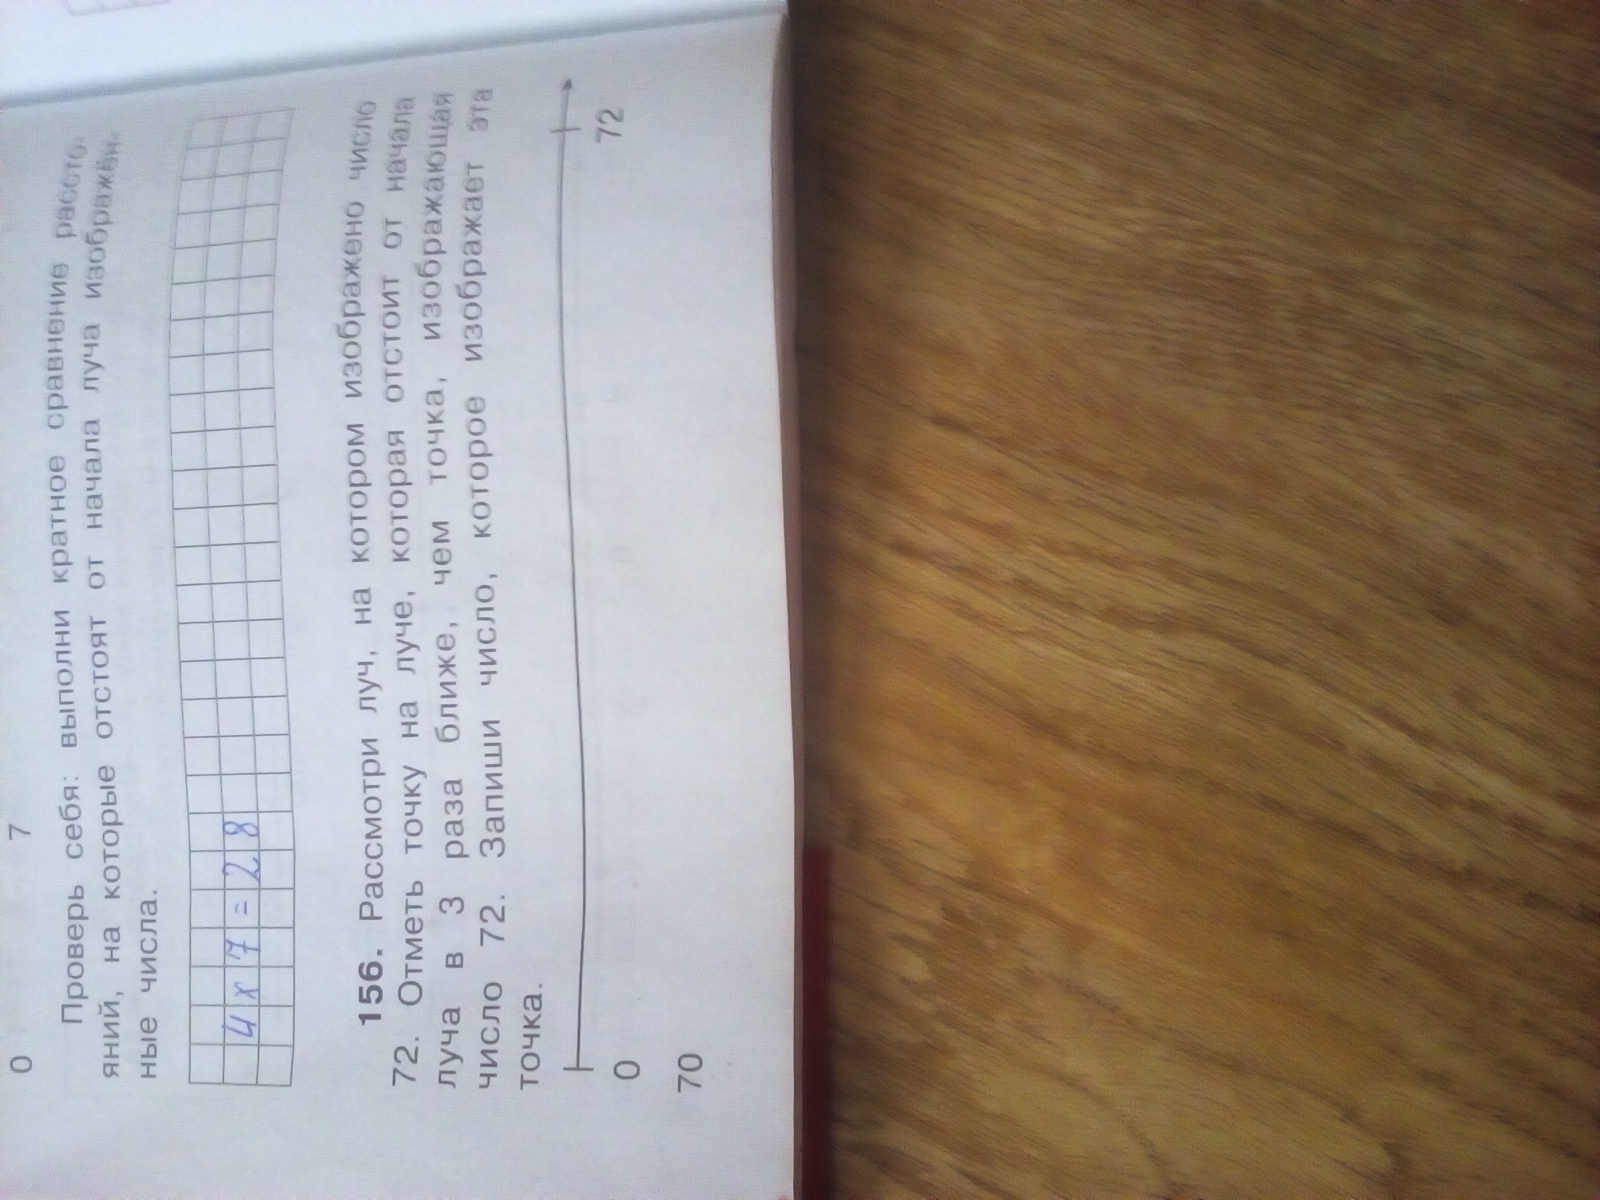 0 7
Проверь себя: выполни кратное сравнение рассто-
яний, на которые отстоят от начала луча изображён-
ные числа.
4 x 7 = 28
156. Рассмотри луч, на котором изображено число
72. Отметь точку на луче, которая отстоит от начала
луча в 3 раза ближе, чем точка, изображающая
число 72. Запиши число, которое изображает эта
точка.
0 72
70